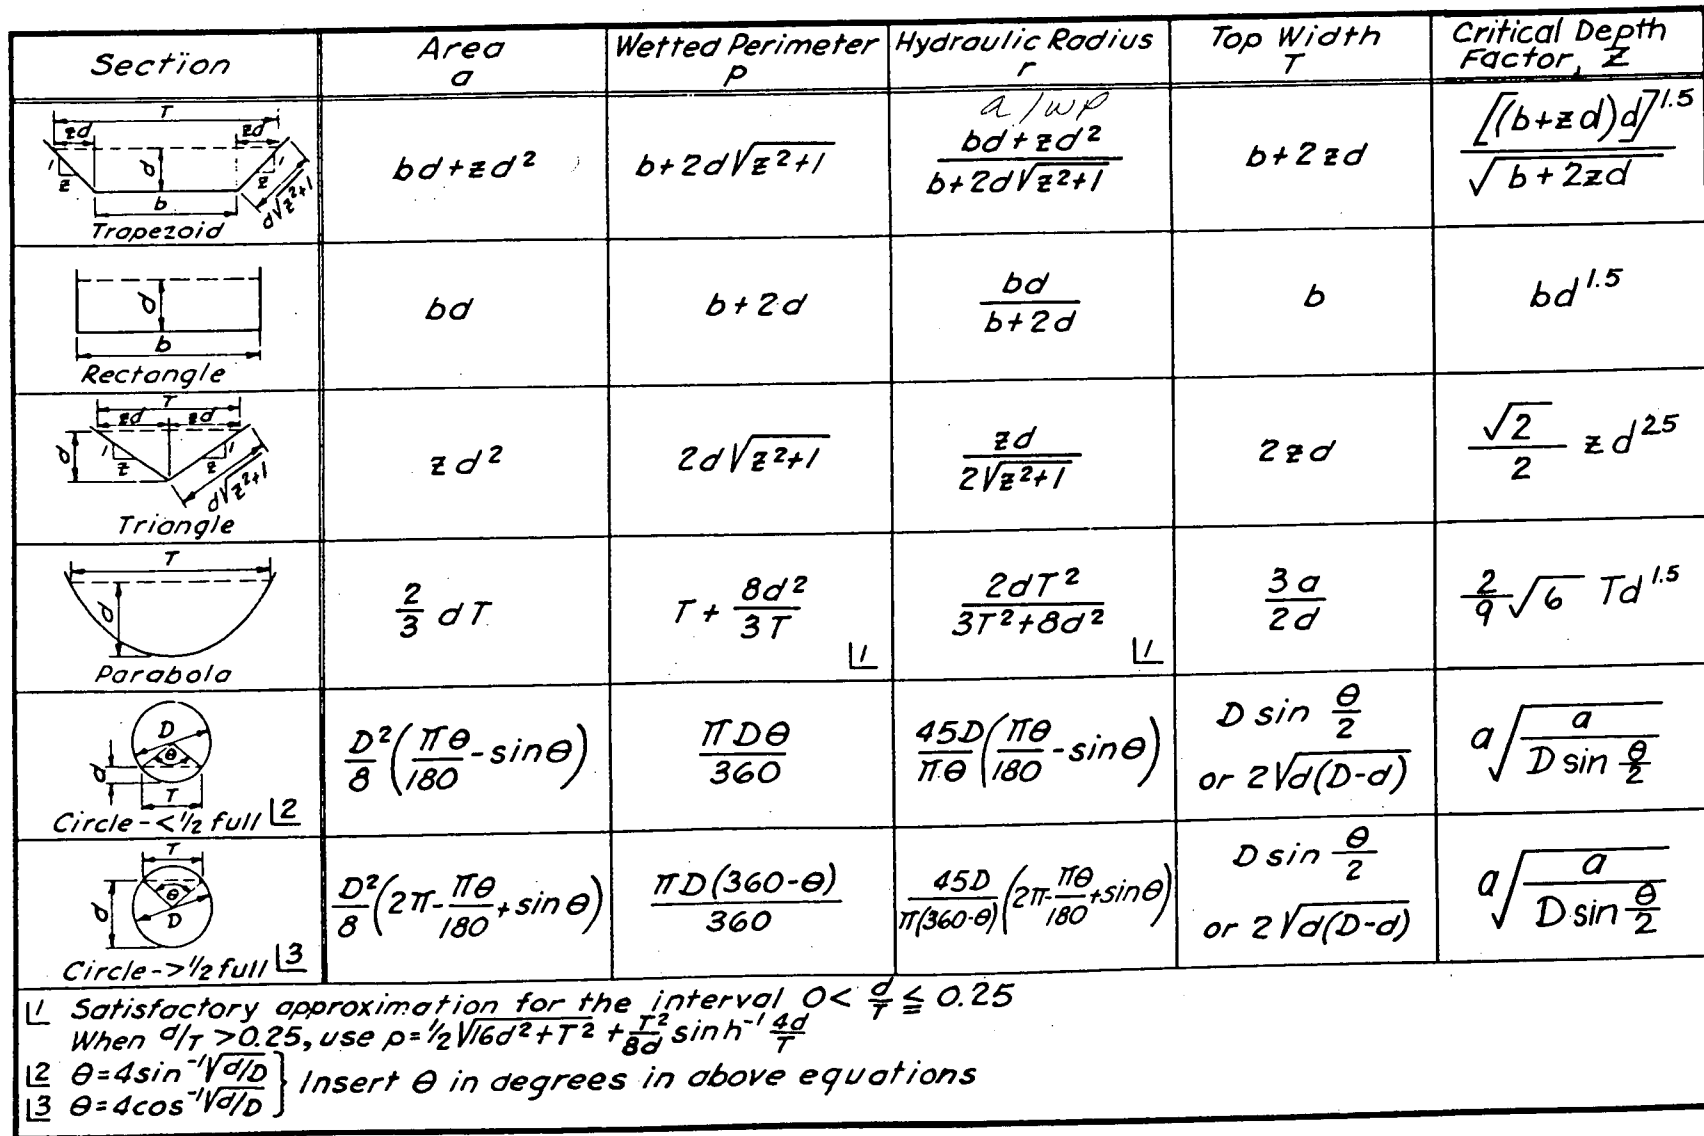 Section
Area
a
Wetted Perimeter
p
Hydraulic Radius
r
Top Width
T
Critical Depth
Factor, Z
T
zd
zd
d
1
z
1
z
b
d√z²+1
Trapezoid
bd+zd²
b+2d√z²+1
a/wp
bd+zd²
b+2d√z²+1
b+2zd
[(b+zd)d]^1.5
√b+2zd
d
b
Rectangle
bd
b+2d
bd
b+2d
b
bd^1.5
T
zd
zd
d
1
z
1
z
d√z²+1
Triangle
zd²
2d√z²+1
zd
2√z²+1
2zd
√2
2
zd^2.5
T
d
Parabola
2/3 dT
T + 8d²/3T
|1
2dT²
3T²+8d²
|1
3a
2d
2/9 √6 Td^1.5
D
θ
d
T
Circle-<1/2 full |2
D²/8 (πθ/180 - sinθ)
πDθ
360
45D/πθ (πθ/180 - sinθ)
D sin θ/2
or 2√d(D-d)
a√a/D sin θ/2
T
θ
d
D
Circle->1/2 full |3
D²/8 (2π - πθ/180 + sinθ)
πD(360-θ)
360
45D/π(360-θ) (2π - πθ/180 + sinθ)
D sin θ/2
or 2√d(D-d)
a√a/D sin θ/2
|1 Satisfactory approximation for the interval 0< d/T ≦ 0.25
When d/T >0.25, use p=1/2√16d²+T² + T²/8d sinh⁻¹ 4d/T
|2 θ=4sin⁻¹√d/D
|3 θ=4cos⁻¹√d/D
} Insert θ in degrees in above equations